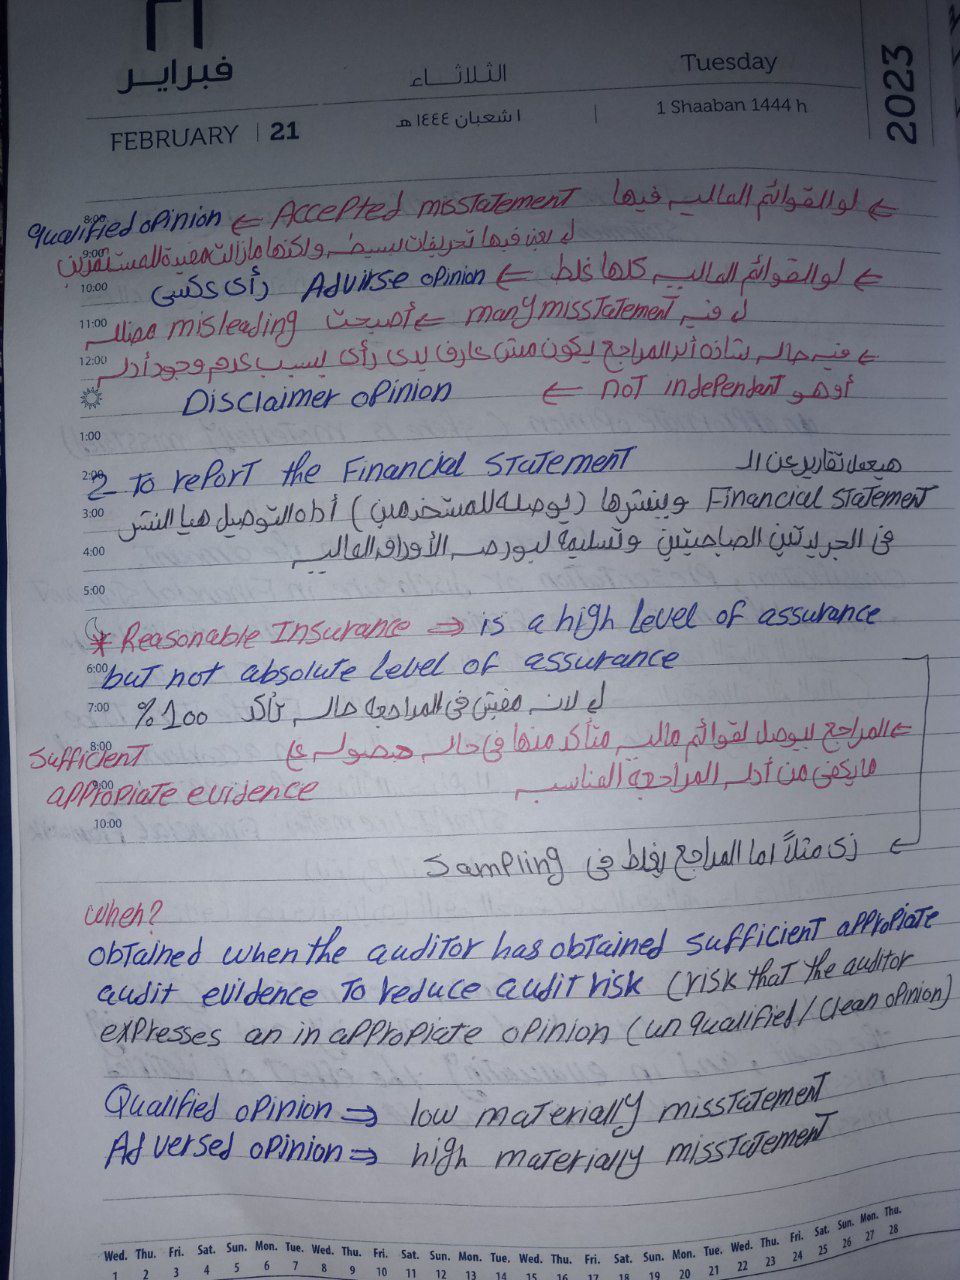 ٢١
فبراير
FEBRUARY | 21
الثلاثاء
١ شعبان ١٤٤٤ هـ
Tuesday
1 Shaaban 1444 h
2023
8:00
لو القوائم الماليه فيها Accepted misstatement ← qualified opinion
9:00
لـ يعنى فيها تحريفات بسيطه ولكنها مازالت مفيدة للمستثمرين
10:00
← لو القوائم الماليه كلها غلط ← Advirse opinion رأى عكسى
11:00
لـ فيه many misstatement ← أصبحت misleading مضلله
12:00
← فيه حاله شاذه أن المراجع يكون مش عارف يدى رأى بسبب عدم وجود أدله
أو هو not independant ← Disclaimer opinion
1:00
2:00
2 To report the Financial statement هيعمل تقارير عن الـ
3:00
Financial statement وينشرها (يوصله للمستخدمين) أداه التوصيل هيا النشر
4:00
فى الجريدتين الصباحيتين وتسليمة لبورصه الأوراق الماليه
5:00
* Reasonable Insurance ⇒ is a high level of assurance
6:00
but not absolute level of assurance
7:00
لـ لانه مفيش فى المراجعه حاله تأكد 100 %
8:00
← المراجع بيوصل لقوائم ماليه متأكد منها فى حاله حصوله ع sufficient
9:00
مايكفى من أدله المراجعة المناسبه appropiate evidence
10:00
← زى مثلاً اما المراجع يغلط فى sampling
when?
obtained when the auditor has obtained sufficient appropiate
audit evidence to reduce audit risk (risk that the auditor
expresses an in appropiate opinion (un qualified / clean opinion)
Qualified opinion ⇒ low materially misstatement
Adversed opinion ⇒ high materially misstatement
Wed. Thu. Fri. Sat. Sun. Mon. Tue. Wed. Thu. Fri. Sat. Sun. Mon. Tue. Wed. Thu. Fri. Sat. Sun. Mon. Tue. Wed. Thu. Fri. Sat. Sun. Mon. Thu.
1 2 3 4 5 6 7 8 9 10 11 12 13 14 15 16 17 18 19 20 21 22 23 24 25 26 27 28